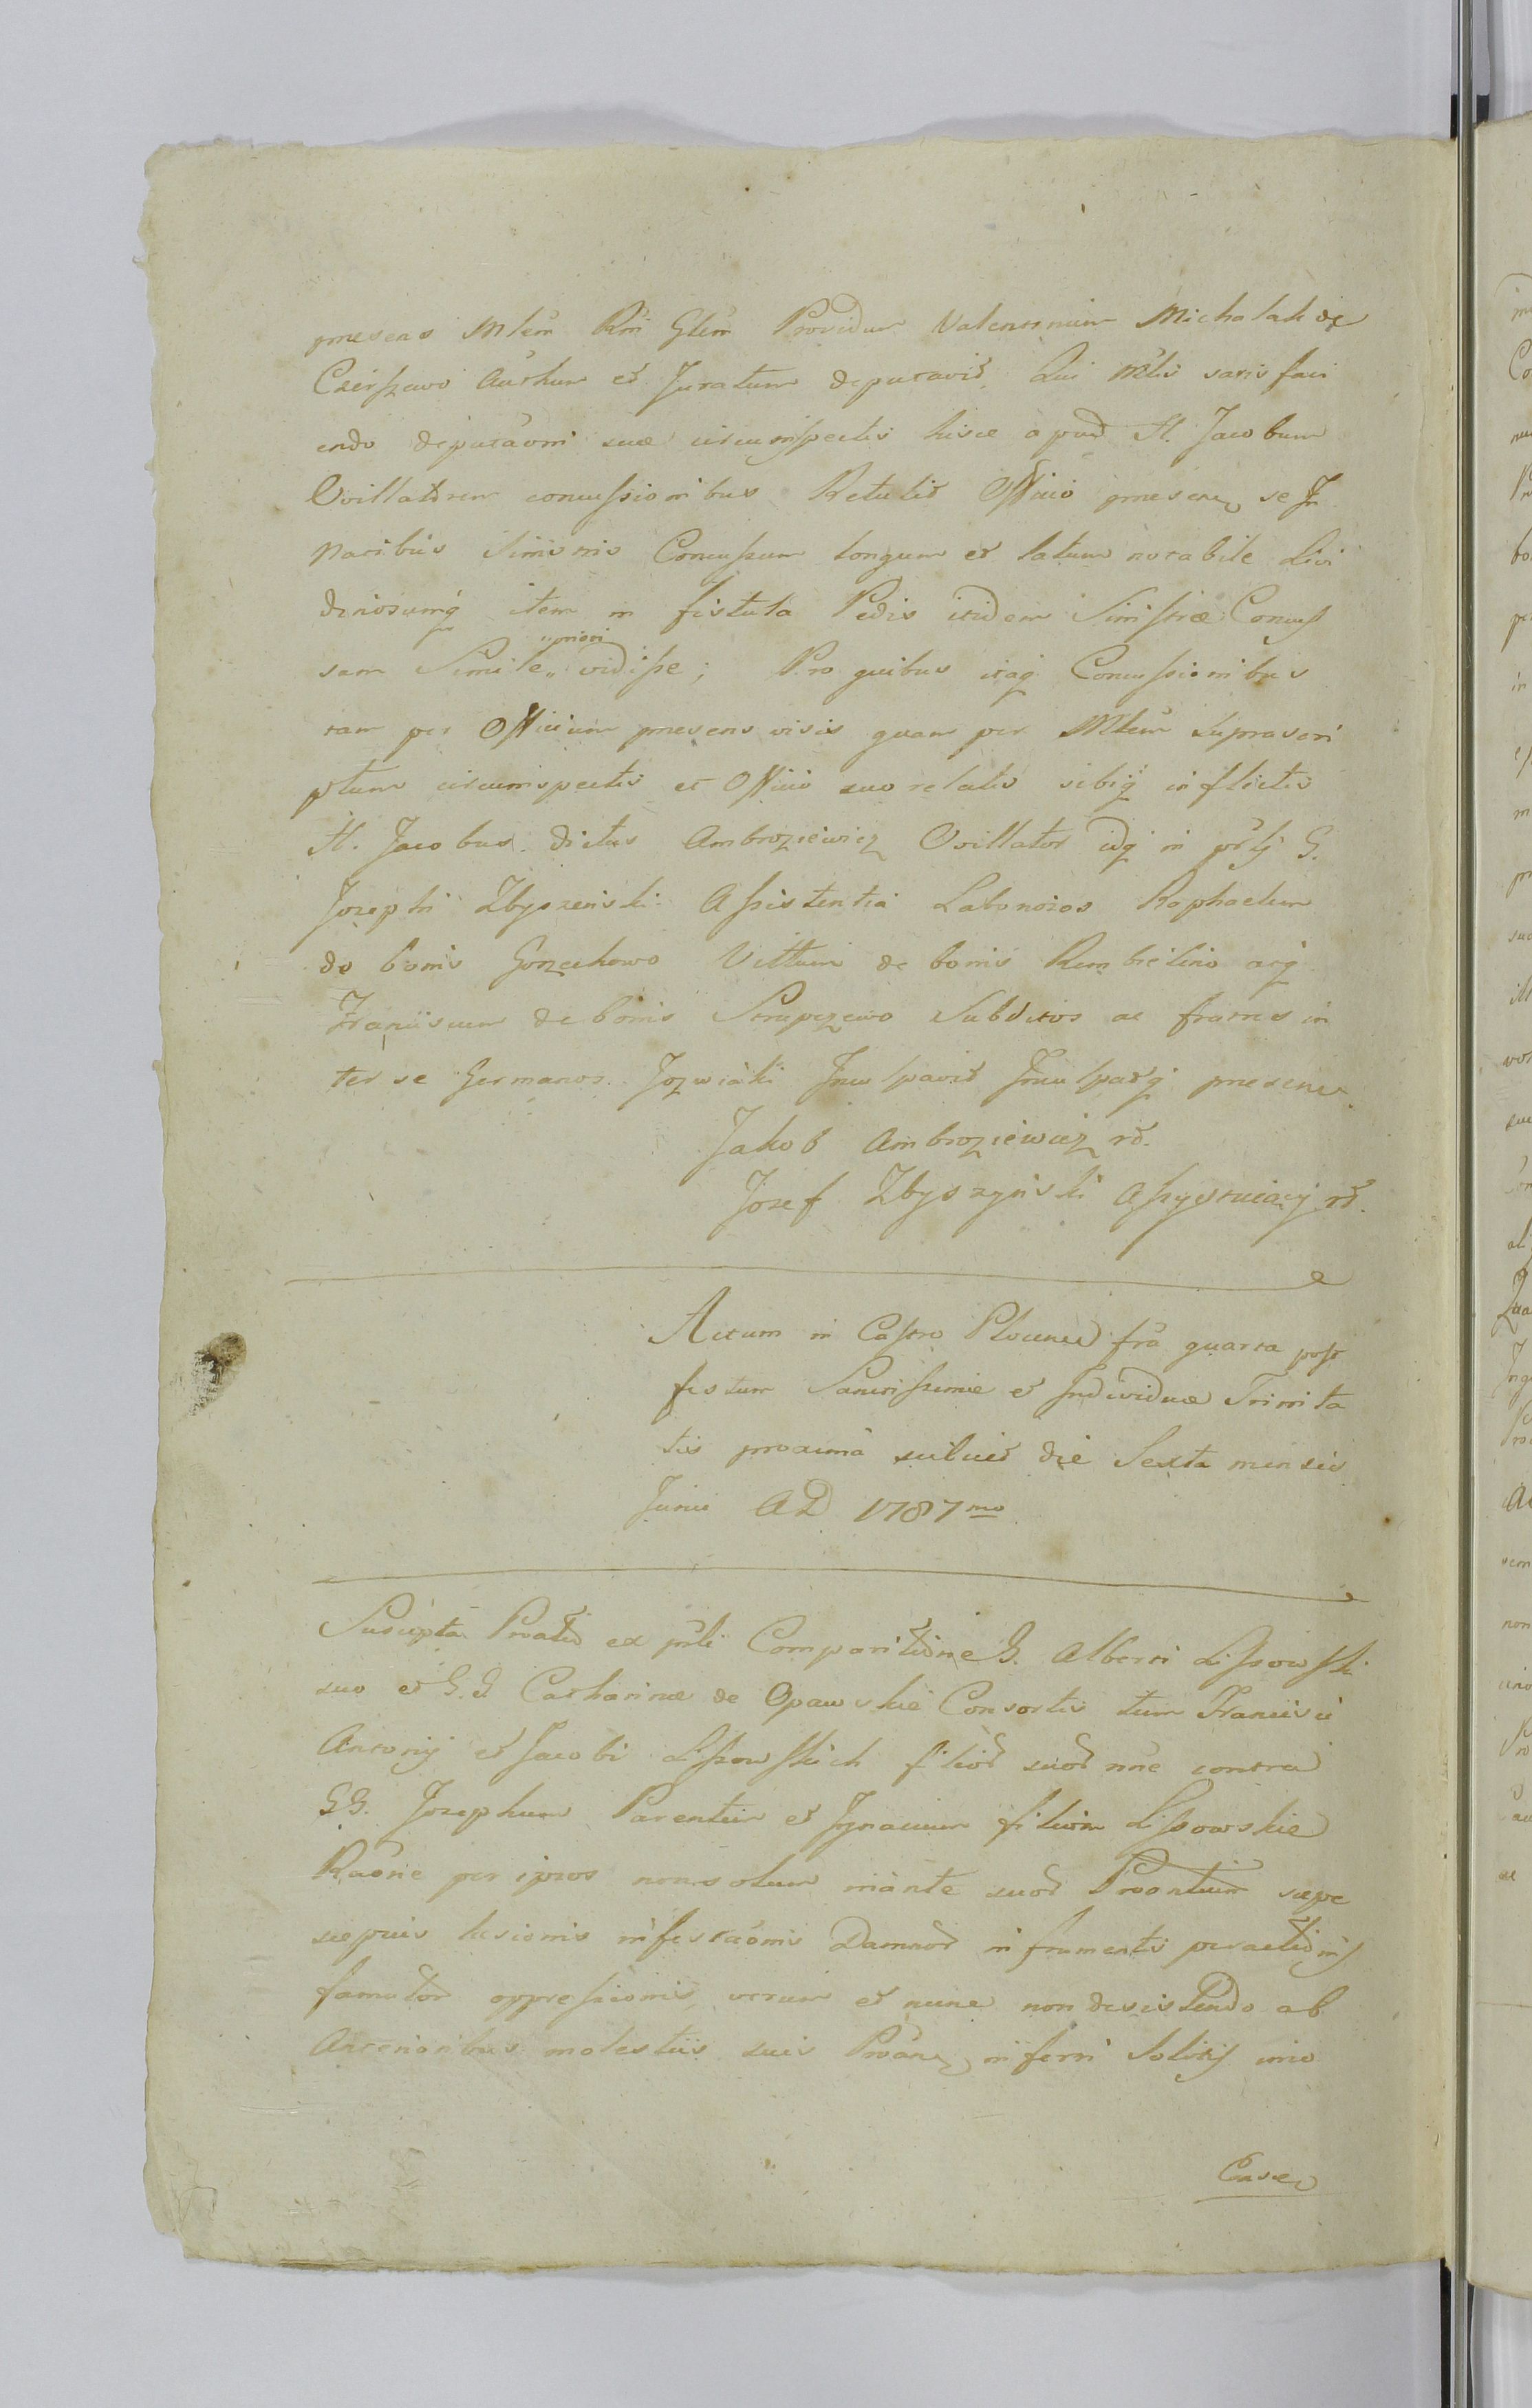 praesens Mlem Rni Glem Providum Valentinum Michalak de
Czerszewo Authum et Juratum deputavit. Qui Mlis satis faci
endo deputaoni suae circumspectis hisce apud H. Jacobum
Ovillatorem concussionibus Retulit Officio praesenti se In
Naribus Sinis Concussum longum et latum notabile Livi
dinosumq item in fistula Pedis itidem Sinistrae Concus
sum Simile „priori„ vidisse; Pro quibus itaq Concussionibus
tam per Officium praesens visis quam per Mlem suprascri
ptum circumspectis et Officio suo relatis sibiq inflictis
H. Jacobus dictus Ambroziewicz Ovillator idq in prlj G.
Jozephi Zbyszenski Assistentia Laboriosos Raphaelem
de bonis Gorzechowo Vittum de bonis Rembielino atq
Franciscum de bonis Strupczewo Subditos ac fratres in
ter se Germanos Jozwiaki Inculpavit Inculpatq praesenti.
Jakob Ambroziewicz rd.
Jozef Zbyszynski Assystuiący rd.
Actum in Castro Plocensi fra quarta post
festum Sanctissimae et Individuae Trinita
tis proxima scilicet die Sexta mensis
Junii AD 1787mo
Suscepta Proatio ex prli Comparitione G. Alberti Lissowski
suo et G.G. Catharinae de Opawskie Consortis tum Francisci
Antonij et Jacobi Lissowskich filior suor nne contra
GG. Jozephum Parentem et Ignacium filium Lissowskie
Raone per ipsos non solum in ante suor Proantium saepe
saepius lesionis infestaonis Damnor in frumentis peractor
famulor oppressionis, verum et nunc non desistendo ab
Anterioribus molestiis suis Proan inferri Solitis imo
Ense